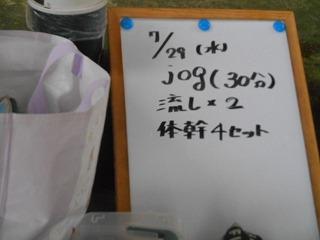 7/29(水)
jog(30分)
流し×2
体幹4セット